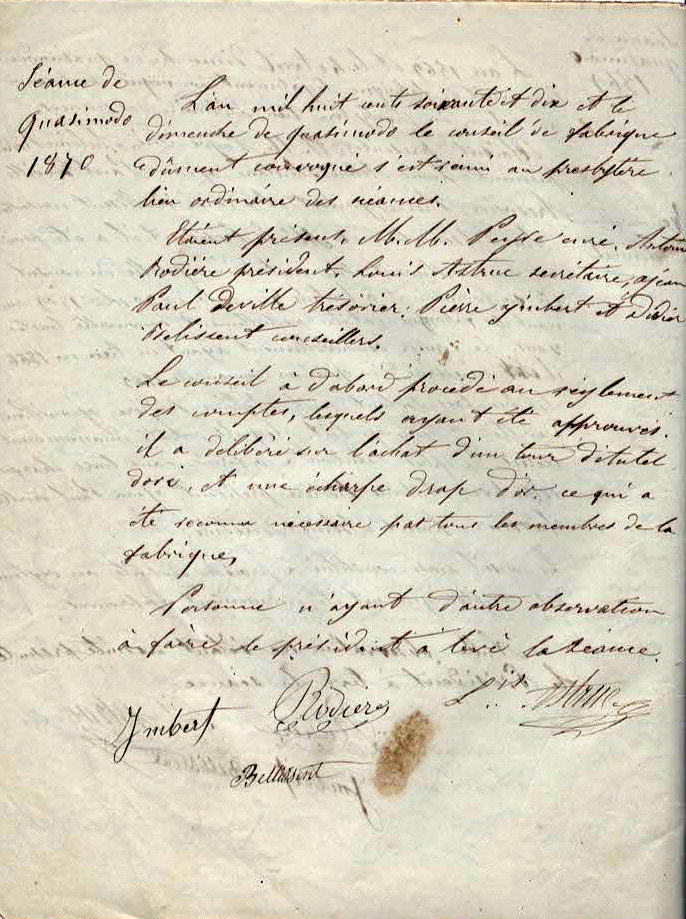 Séance de
quasimodo
1870
L'an mil huit cents soixante et dix et le
dimenche de quasimodo le conseil de fabrique
dûment convoqué s'est réuni au presbytère
lieu ordinaire des séances.
Etaient présents. M.M. Peyre curé, Antoine
Rodière président, Louis Astruc secrétaire, Jean
Paul Deville trésorier, Pierre ymbert et Didier
Belissent conseillers.
Le conseil à d'abord procédé au réglement
des comptes, lesquels ayant été approuvés.
il a délibéré sur l'achat d'un tour d'autel
doré, et une écharpe drap d'or. ce qui a
été reconnu nécessaire par tous les membres de la
fabrique,
Personne n'ayant d'autre observation
à faire le président à levé la séance.
Ymbert Rodière L.is Astruc
Bellissent